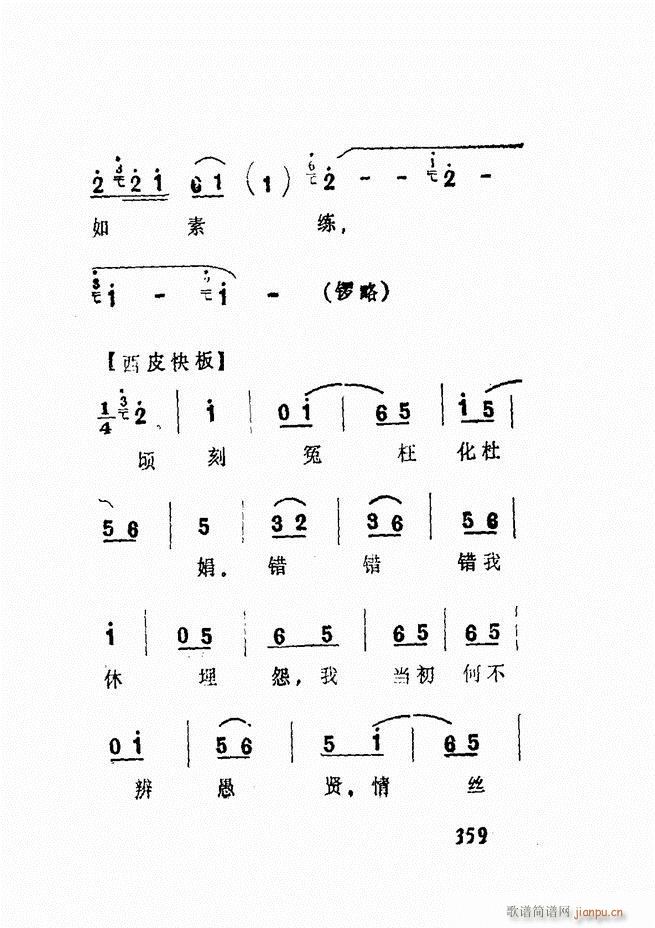 2̇ 2̇ 1̇ 6 1 (1) 2̇ - - 2̇ -
如 素 练，
1̇ - 1̇ - (锣略)
【西皮快板】
1/4 2̇ | 1̇ | 0 1̇ | 6 5 | 1̇ 5 |
顷 刻 冤 枉 化杜
5 6 | 5 | 3 2 | 3 6 | 5 6 |
娟．错 错 错我
1̇ | 0 5 | 6 5 | 6 5 | 6 5 |
休 埋 怨，我 当初 何不
0 1̇ | 5 6 | 5 1̇ | 6 5 |
辨 愚 贤，情 丝
359
歌谱简谱网 jianpu.cn